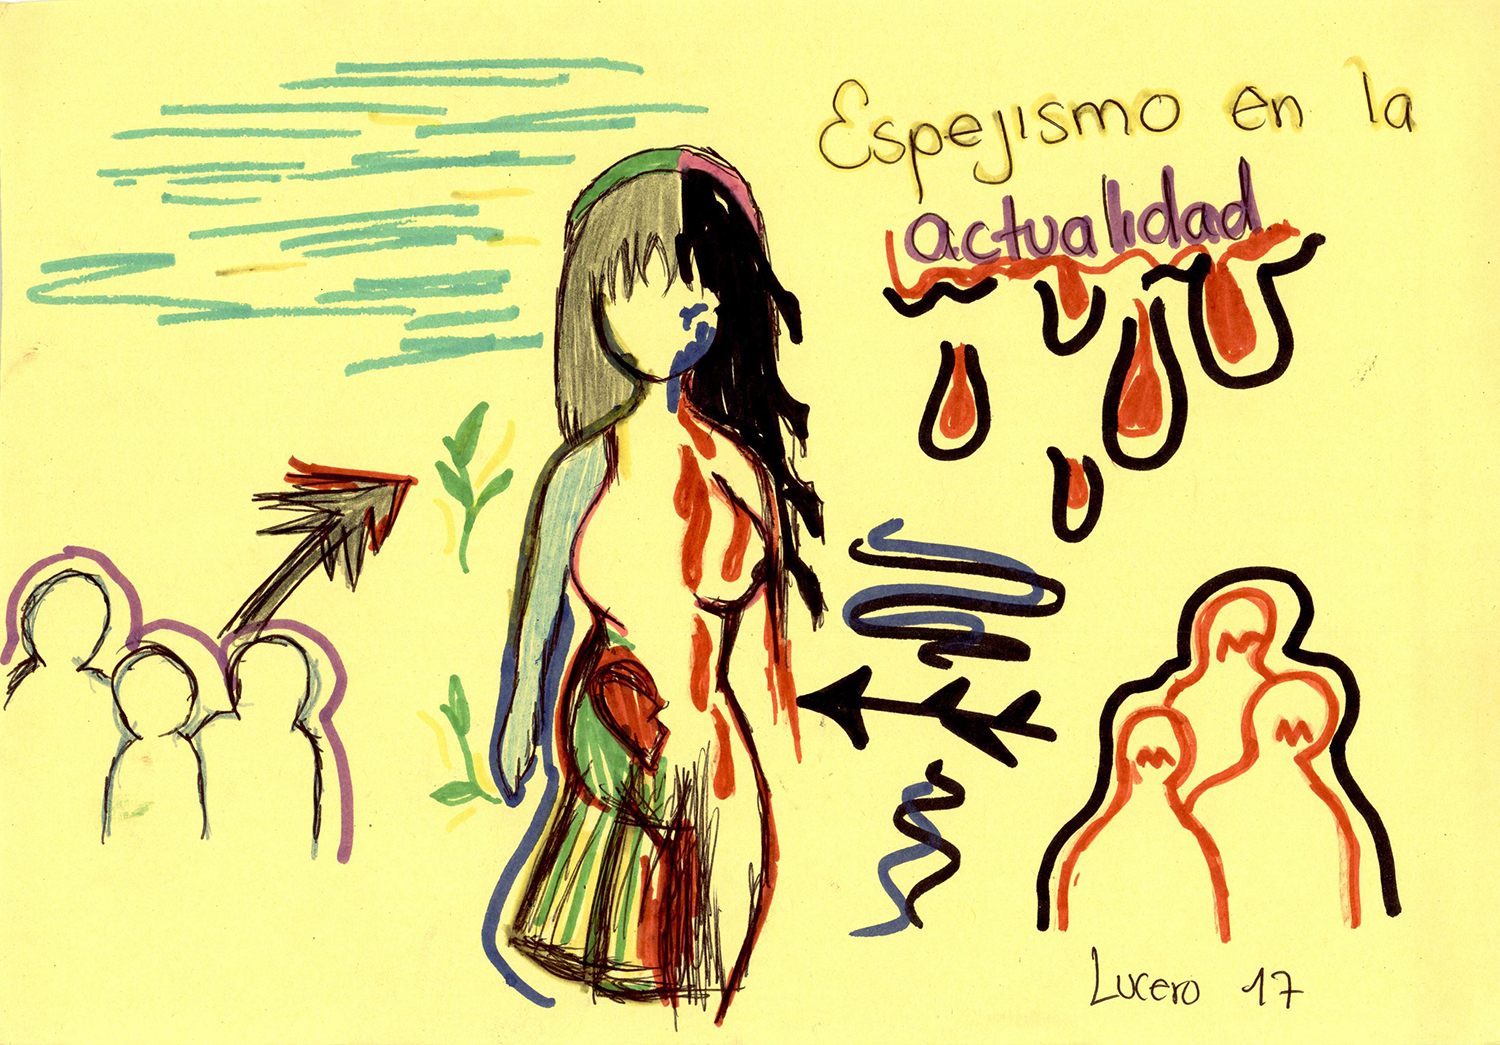 Espejismo en la
actualidad
Lucero 17